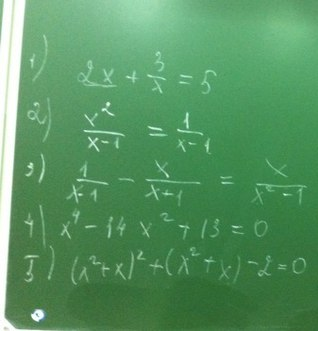 1) 2x + 3/x = 5
2) x²/(x-1) = 1/(x-1)
3) 1/(x-1) - x/(x+1) = x/(x²-1)
4) x⁴ - 14x² + 13 = 0
5) (x²+x)² + (x²+x) - 2 = 0